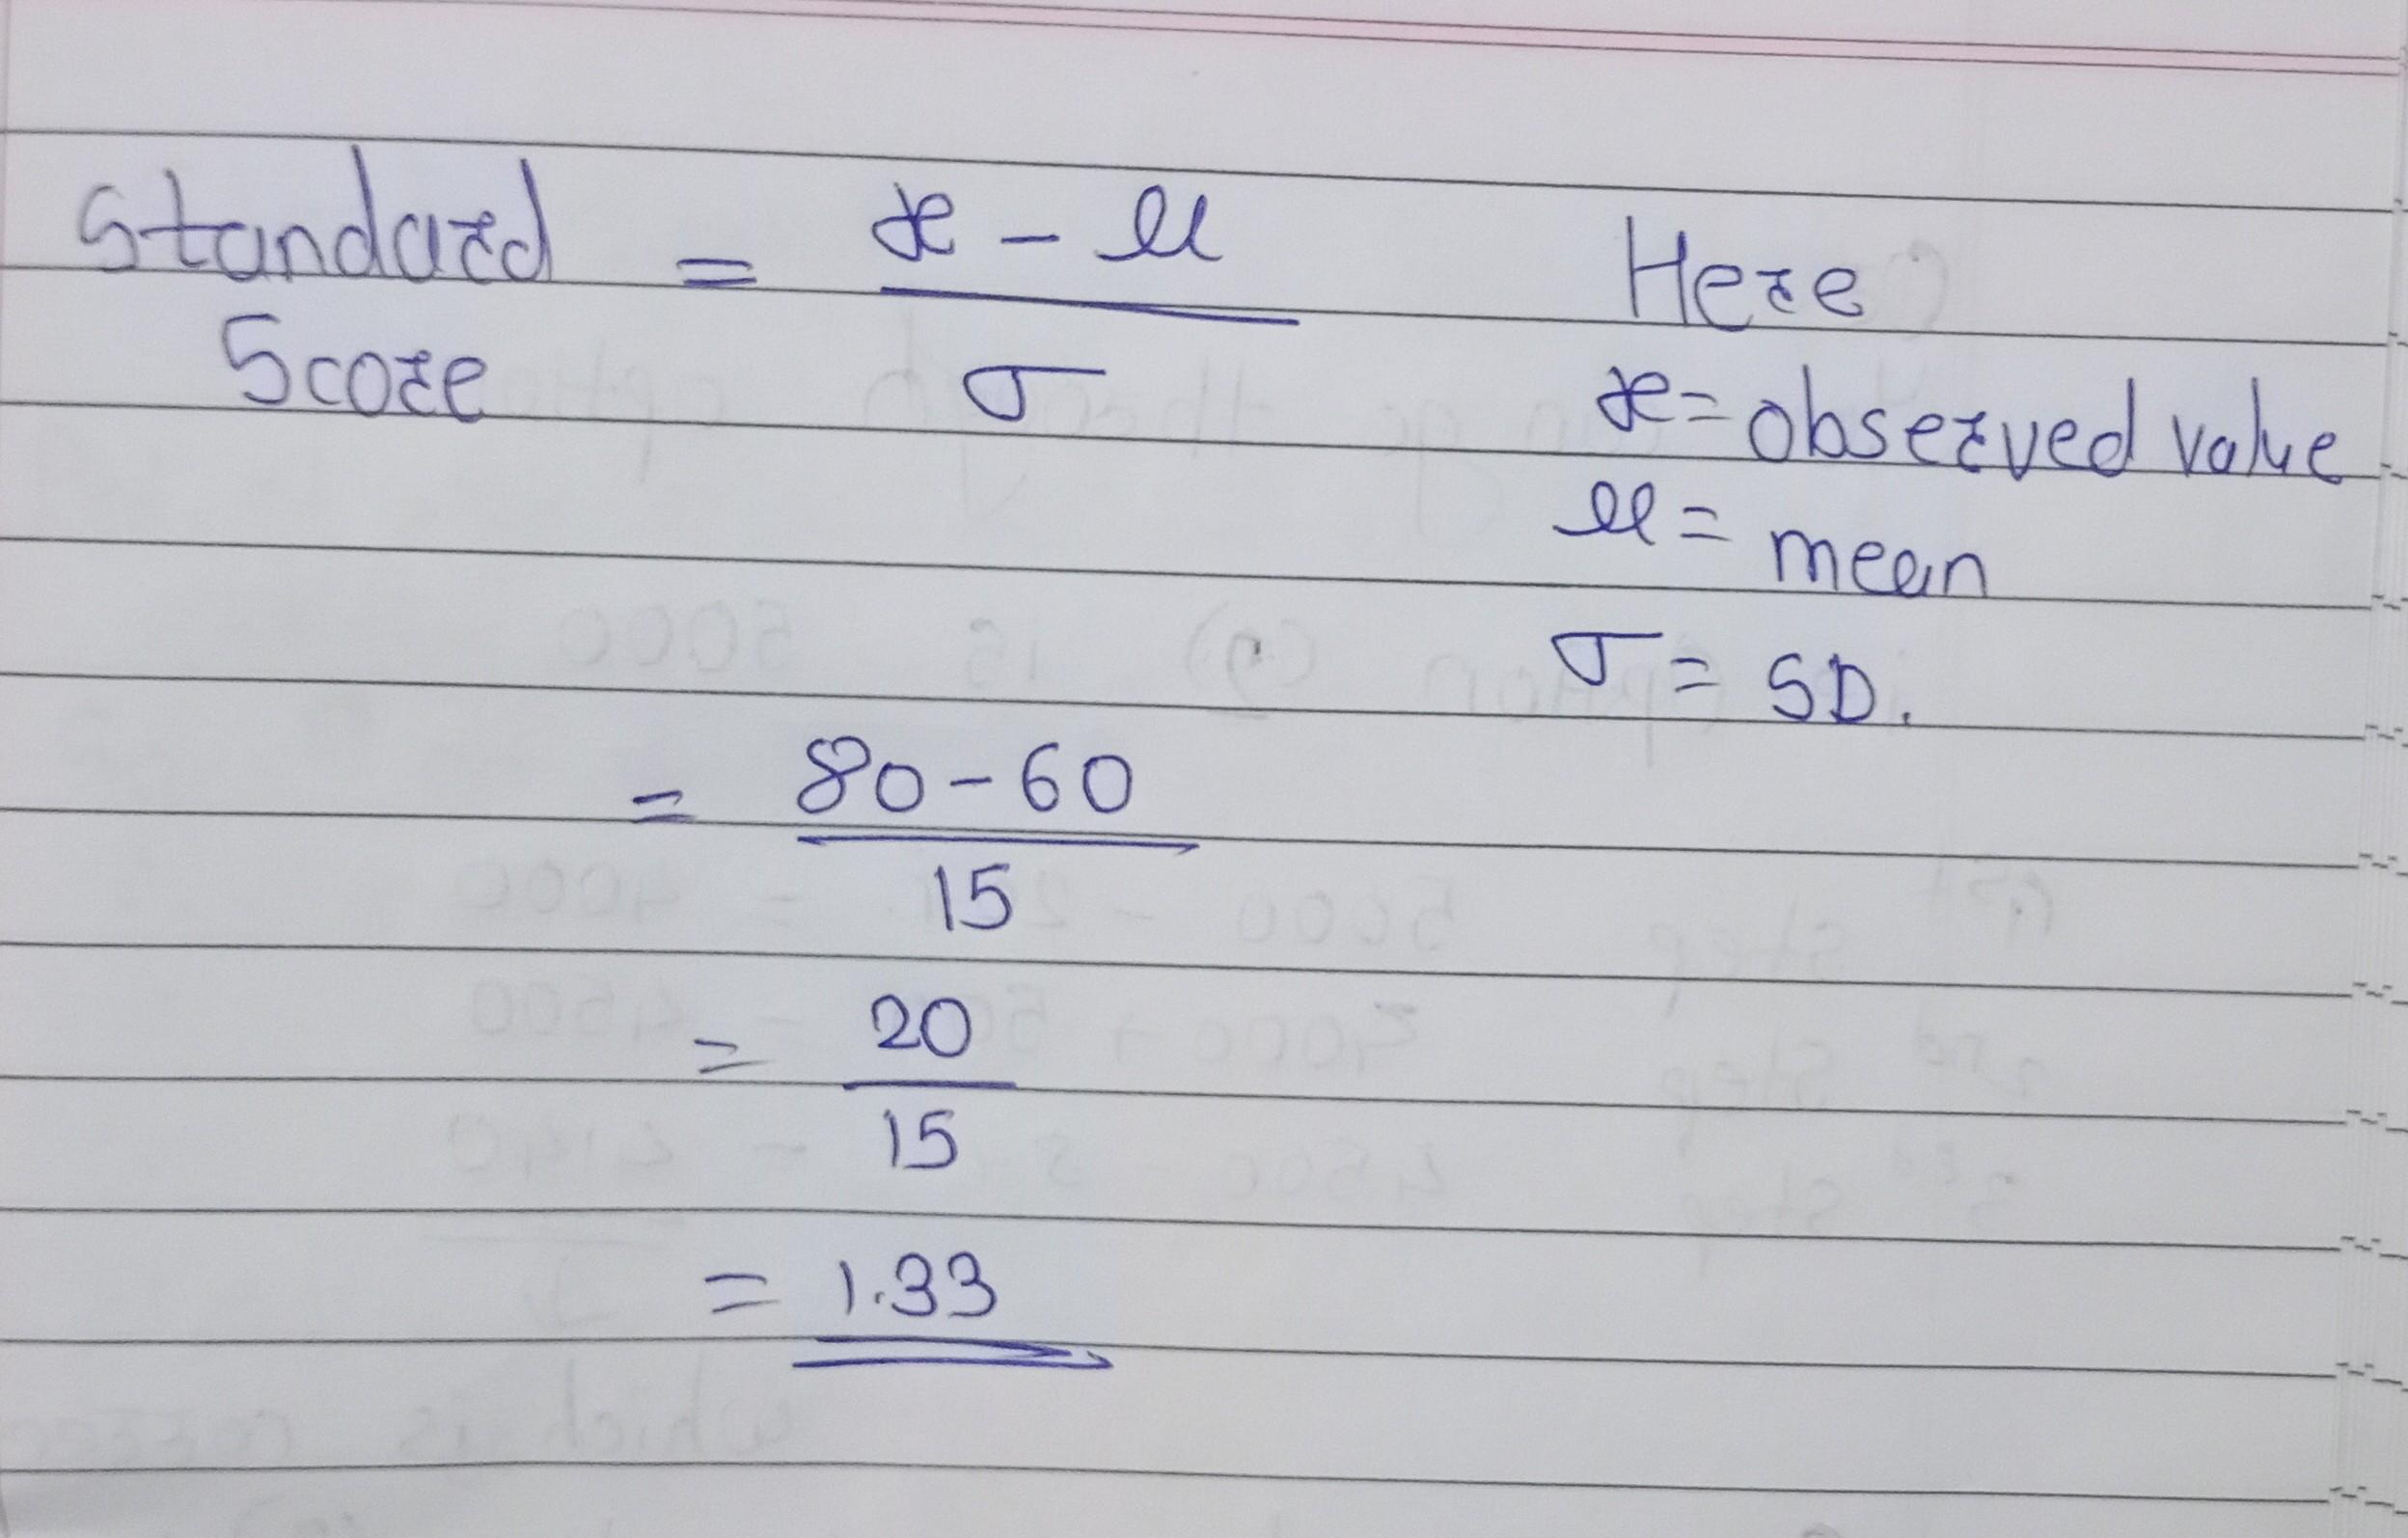 Standard = x - μ
Score σ
Here
x = observed value
μ = mean
σ = SD.
= 80 - 60
15
= 20
15
= 1.33